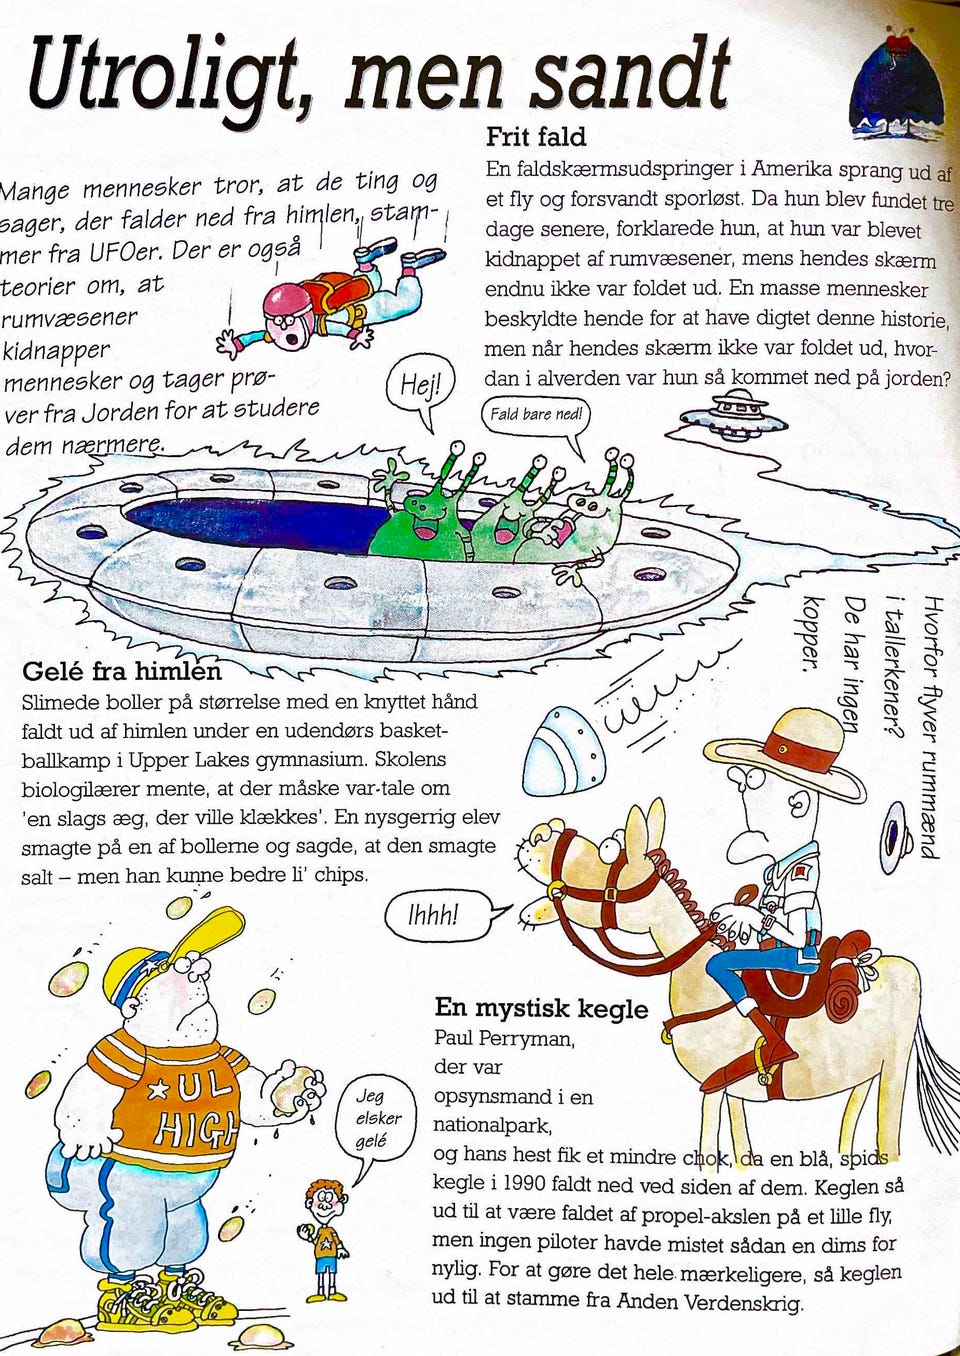 Utroligt, men sandt
Mange mennesker tror, at de ting og
sager, der falder ned fra himlen, stam-
mer fra UFOer. Der er også
teorier om, at
rumvæsener
kidnapper
mennesker og tager prø-
ver fra Jorden for at studere
dem nærmere.
Frit fald
En faldskærmsudspringer i Amerika sprang ud af
et fly og forsvandt sporløst. Da hun blev fundet tre
dage senere, forklarede hun, at hun var blevet
kidnappet af rumvæsener, mens hendes skærm
endnu ikke var foldet ud. En masse mennesker
beskyldte hende for at have digtet denne historie,
men når hendes skærm ikke var foldet ud, hvor-
dan i alverden var hun så kommet ned på jorden?
Hej!
Fald bare ned!
Hvorfor flyver rummænd
i tallerkener?
De har ingen
kopper.
Gelé fra himlen
Slimede boller på størrelse med en knyttet hånd
faldt ud af himlen under en udendørs basket-
ballkamp i Upper Lakes gymnasium. Skolens
biologilærer mente, at der måske var tale om
'en slags æg, der ville klækkes'. En nysgerrig elev
smagte på en af bollerne og sagde, at den smagte
salt – men han kunne bedre li' chips.
Ihhh!
UL
HIGH
Jeg
elsker
gelé
En mystisk kegle
Paul Perryman,
der var
opsynsmand i en
nationalpark,
og hans hest fik et mindre chok, da en blå, spids
kegle i 1990 faldt ned ved siden af dem. Keglen så
ud til at være faldet af propel-akslen på et lille fly,
men ingen piloter havde mistet sådan en dims for
nylig. For at gøre det hele mærkeligere, så keglen
ud til at stamme fra Anden Verdenskrig.